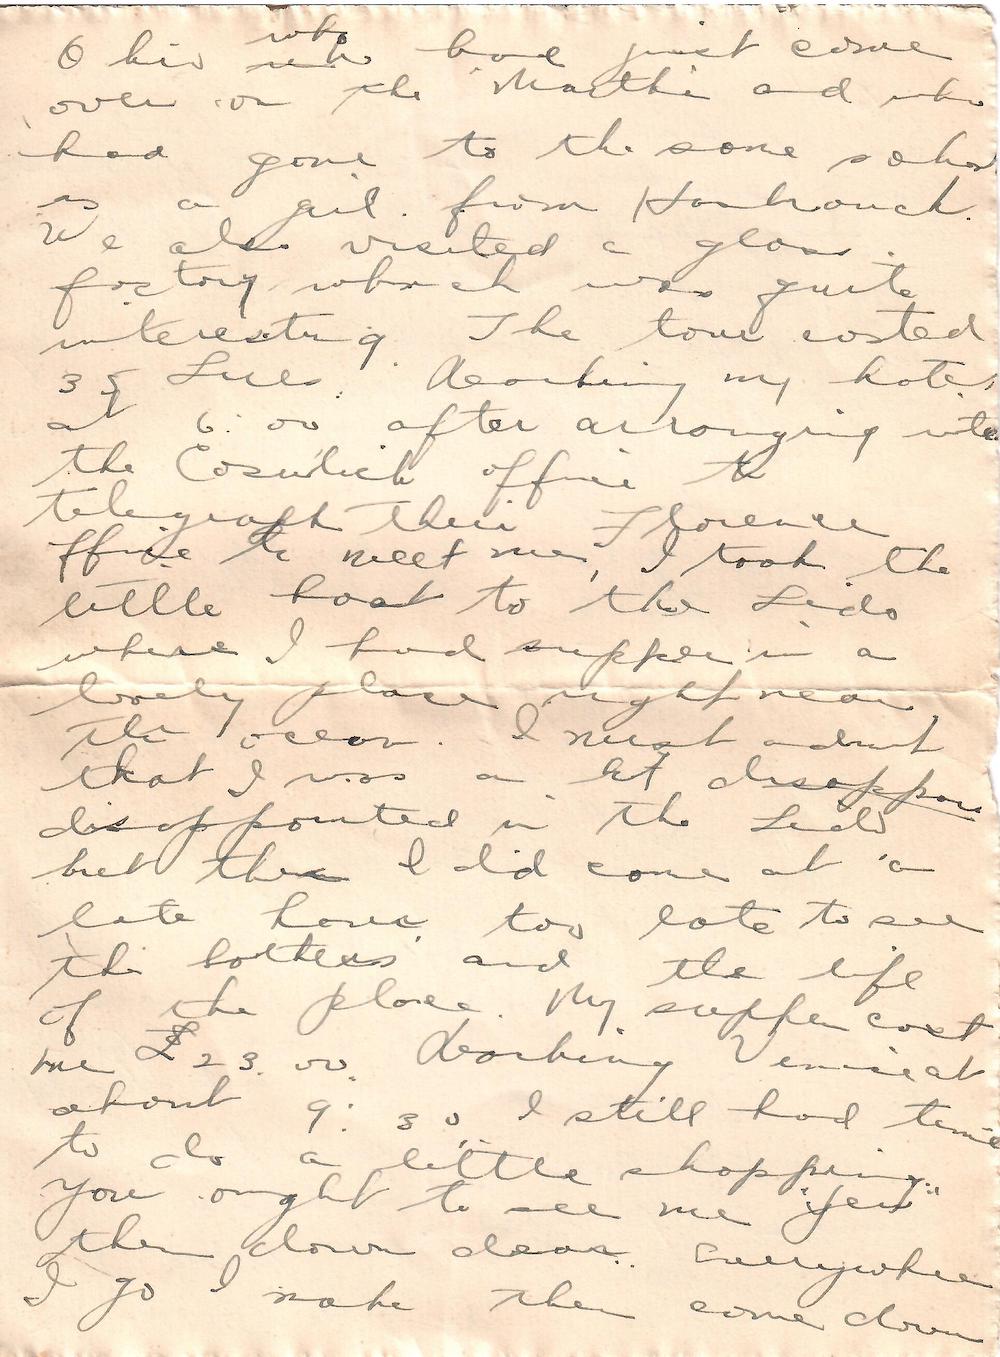 Ohio who who had just come
over on the "Martha and who
had gone to the same school
as a girl from
We also visited a glass
factory which was quite
interesting. The tour costed
35 Lires. Reaching my hotel
at 6:00 after arranging with
the Cosulich office to
telegraph their Florence
office to meet me, I took the
little boat to the Lido
where I had supper in a
lovely place right near
the ocean. I must admit
that I was a bit disappoin
disappointed in the Lido
but then I did come at a
late hour, too late to see
the bathers and the life
of the place. My supper cost
me £23.00. Reaching Venice at
about 9:30 I still had time
to do a little shopping.
You ought to see me "Jew"
them down dear. Everywhere
I go I make them come down